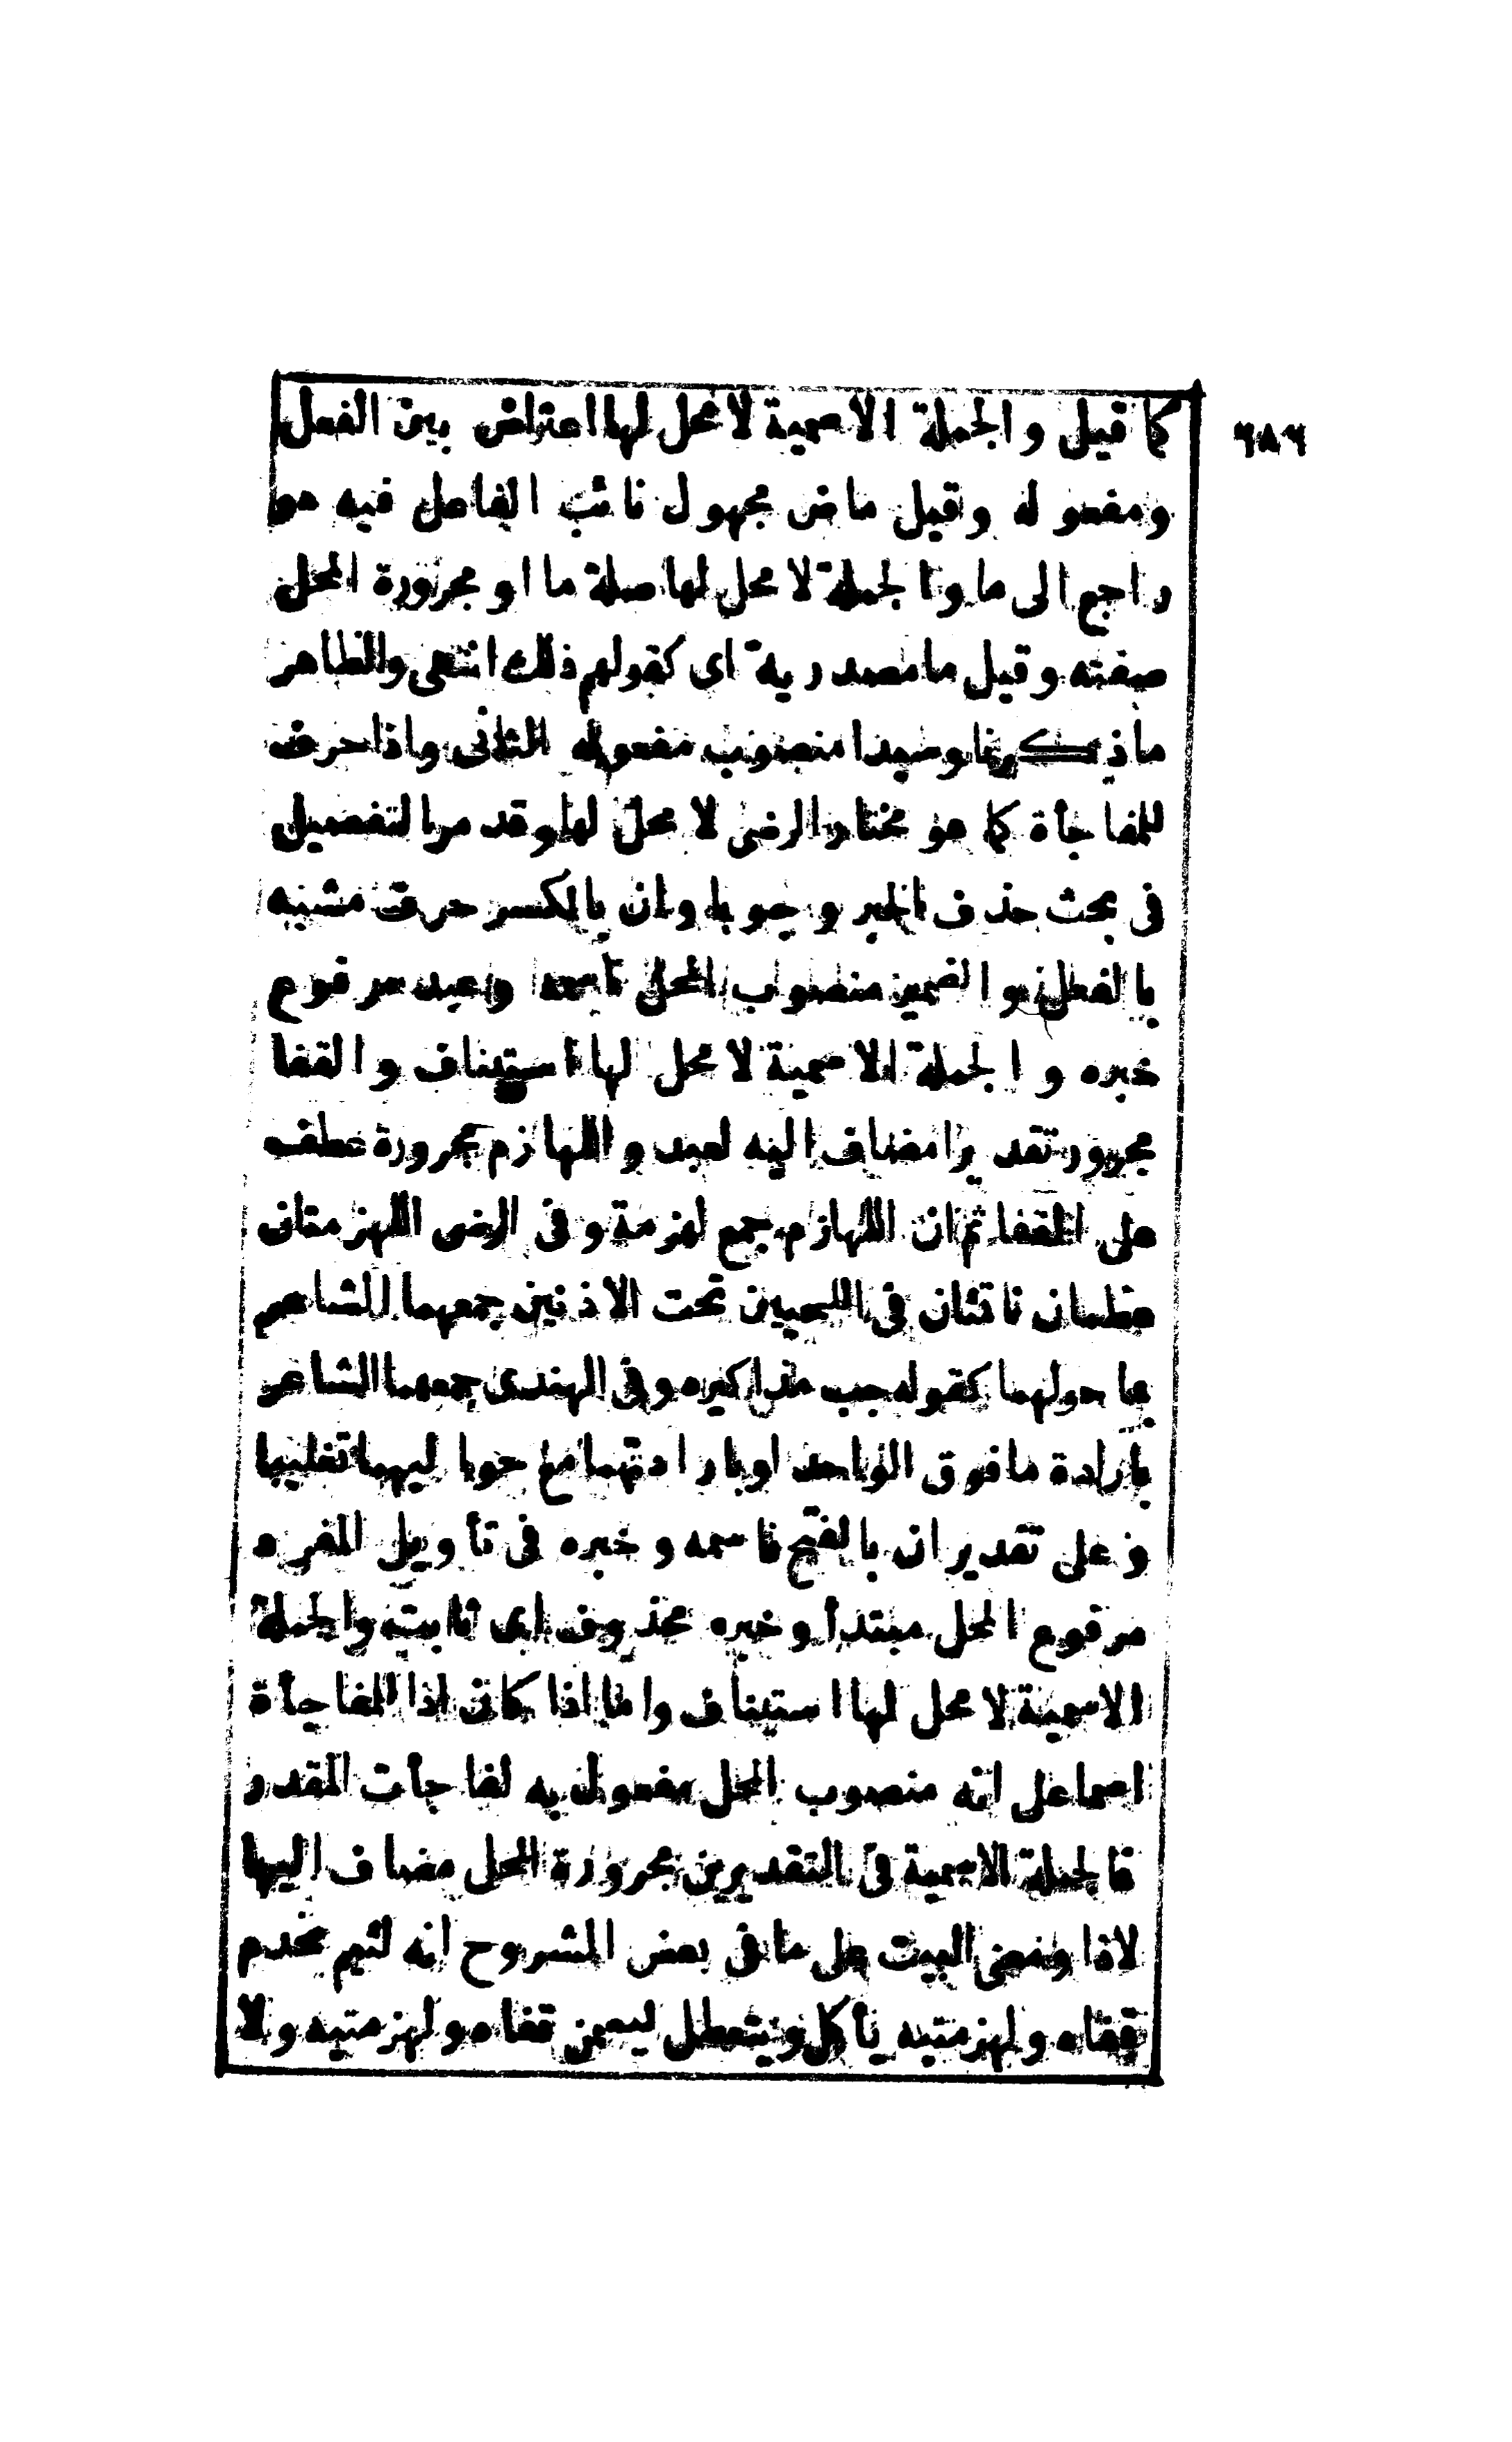 ٦٨٦
كما قيل والجملة الاسمية لا محل لها اعتراض بين الفعل
ومفعوله وقيل ماض مجهول نائب الفاعل فيه هو
راجع الى ما والجملة لا محل لها صلة ما او مجرورة المحل
صفته وقيل ما مصدرية اى كقولهم ذلك انتهى والظاهر
ما ذكرنا وسيدا منصوب مفعوله الثانى واذا حرف
للمفاجأة كما هو مختار الرضى لا محل لها وقد مر التفصيل
فى بحث حذف الخبر وجوبا وان بالكسر حرف مشبه
بالفعل والضمير منصوب المحل اسمه وعبد مرفوع
خبره والجملة الاسمية لا محل لها استيناف والقفا
مجرور تقديرا مضاف اليه لعبد واللهازم مجرورة عطف
على القفا ثم ان اللهازم جمع لهزمة وفى الرضى اللهزمتان
عظمان ناتئان فى اللحيين تحت الاذنين جمعهما الشاعر
بما حولهما كقوله جب مذاكيره وفى الهندى جمعهما الشاعر
بارادة ما فوق الواحد او بارادتهما مع حواليهما تغليبا
وعلى تقدير ان بالفتح فاسمه وخبره فى تأويل المفرد
مرفوع المحل مبتدأ وخبره محذوف اى ثابت والجملة
الاسمية لا محل لها استيناف واما اذا كان اذا المفاجأة
اسما على انه منصوب المحل مفعول به لفاجأت المقدر
فالجملة الاسمية فى التقديرين مجرورة المحل مضاف اليها
لاذا ومعنى البيت على ما فى بعض الشروح انه لئيم يخدم
قفاه ولهزمتيه يأكل ويتعطل ليسمن قفاه ولهزمتيه ولا